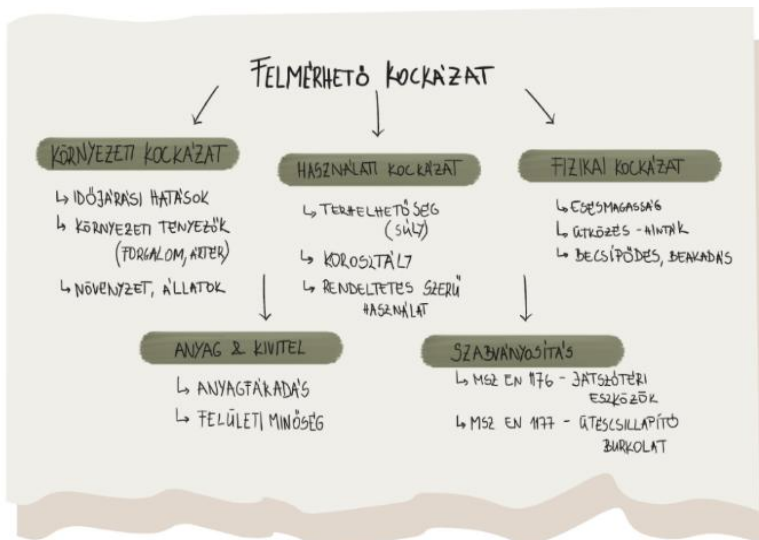 FELMÉRHETŐ KOCKÁZAT
KÖRNYEZETI KOCKÁZAT
↳ IDŐJÁRÁSI HATÁSOK
↳ KÖRNYEZETI TÉNYEZŐK
(FORGALOM, ÁRTÉR)
↳ NÖVÉNYZET, ÁLLATOK
HASZNÁLATI KOCKÁZAT
↳ TERHELHETŐSÉG
(SÚLY)
↳ KOROSZTÁLY
↳ RENDELTETÉS SZERŰ
HASZNÁLAT
FIZIKAI KOCKÁZAT
↳ ESÉSMAGASSÁG
↳ ÜTKÖZÉS - HINTÁK
↳ BECSÍPŐDÉS, BEAKADÁS
ANYAG & KIVITEL
↳ ANYAGFÁRADÁS
↳ FELÜLETI MINŐSÉG
SZABVÁNYOSÍTÁS
↳ MSZ EN 1176 - JÁTSZÓTÉRI
ESZKÖZÖK
↳ MSZ EN 1177 - ÜTÉSCSILLAPÍTÓ
BURKOLAT